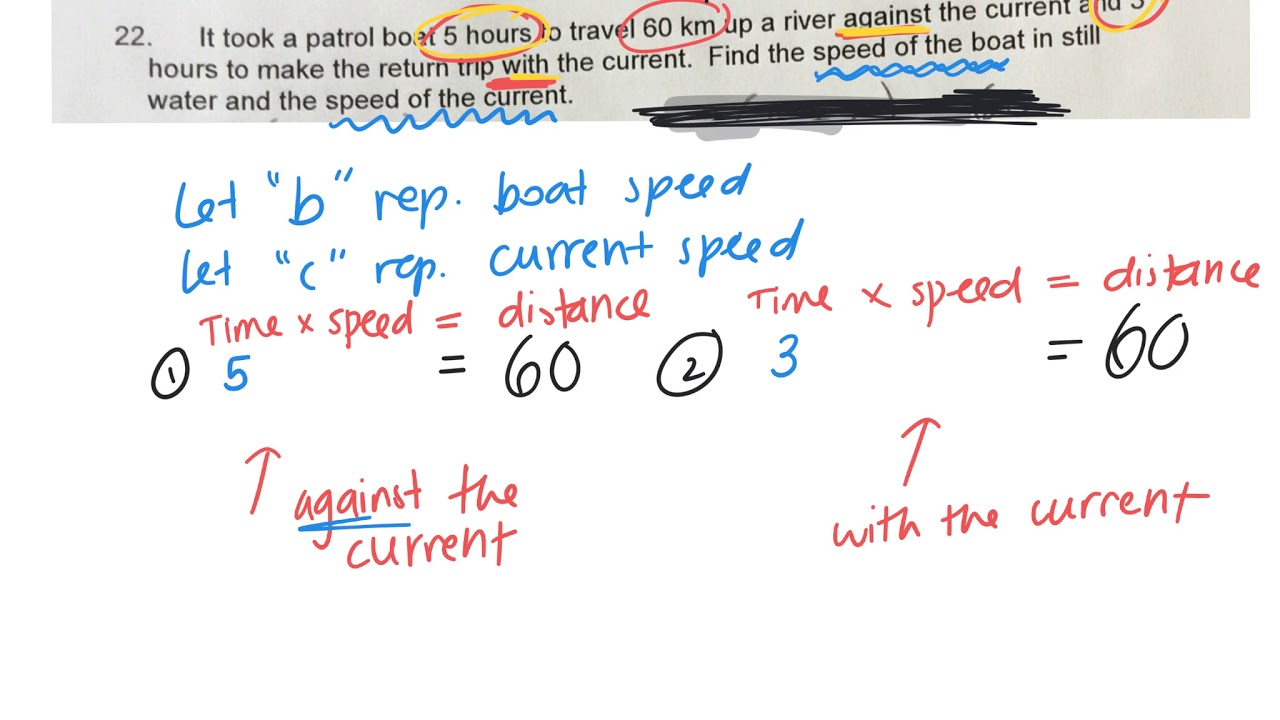 22. It took a patrol boat 5 hours to travel 60 km up a river against the current and 3
hours to make the return trip with the current. Find the speed of the boat in still
water and the speed of the current.
Let "b" rep. boat speed
Let "c" rep. current speed
Time x speed = distance
Time x speed = distance
① 5 = 60
② 3 = 60
against the
current
with the current